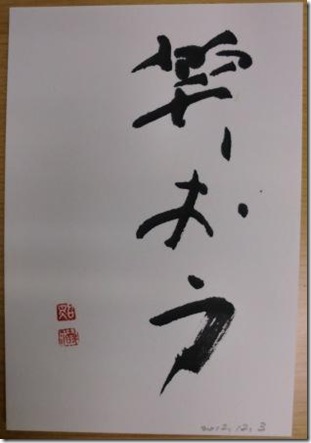 笑おう
2012.12.3